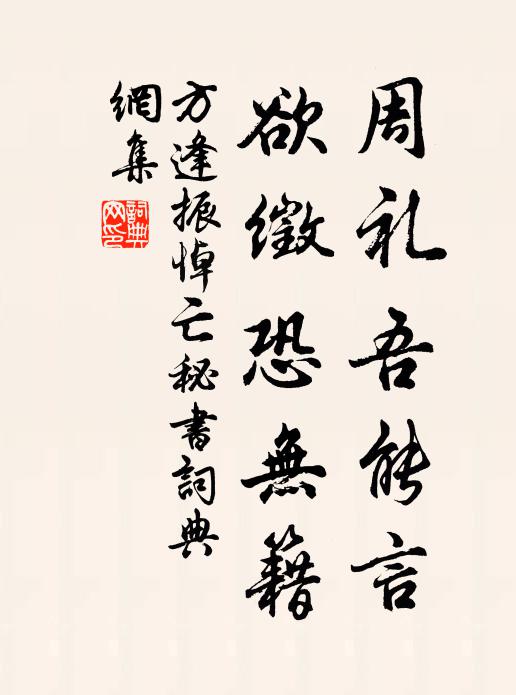 周礼吾能言
欲徵恐無籍
方逢振悼亡秘書詞典
網集
詞典网印